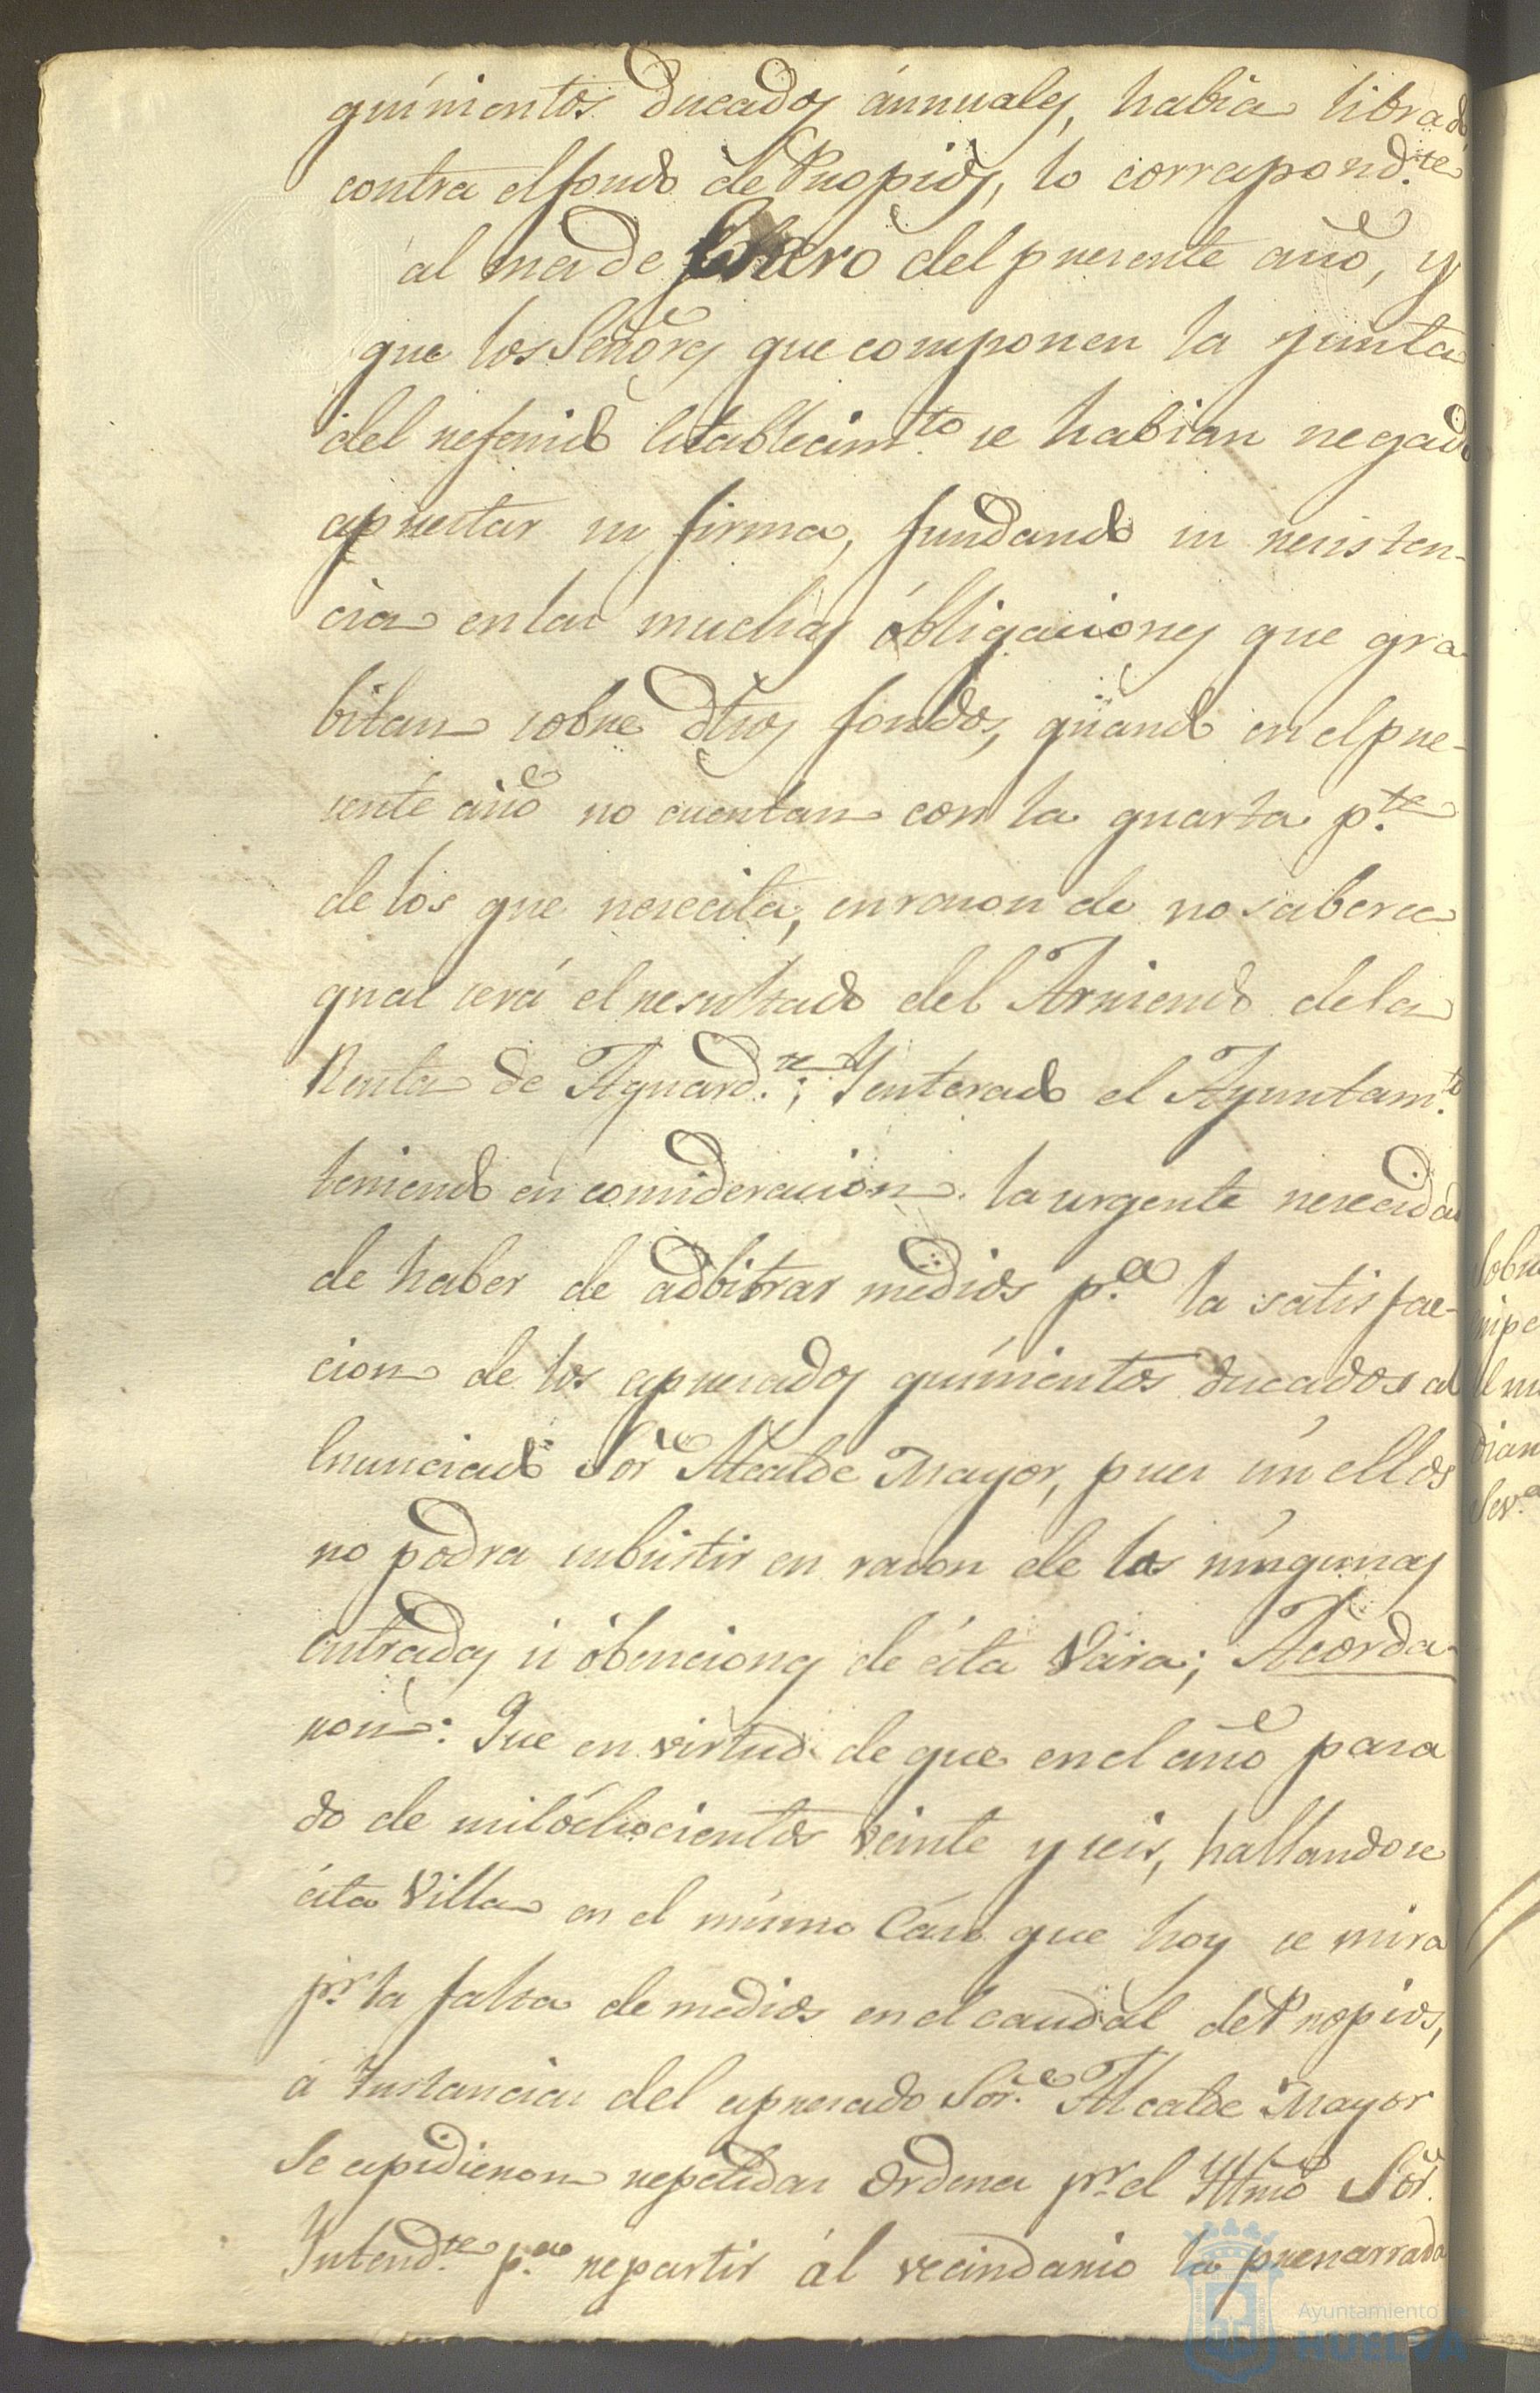 quinientos ducados ánnuales, habia librado
contra el fondo de Propios, lo correspond.te
al mes de Febrero del presente año, y
que los Señores que componen la Junta
del referido Establecim.to se habian negado
aprestar su firma, fundando su resisten-
cia en las muchas óbligaciones que gra-
bitan sobre dhos fondos, quando en el pre-
sente año no cuentan con la quarta p.te
de los que nesecita, en razon de no saberse
qual será el resultado del Arriendo de la
Renta de Aguard.te; Y enterado el Ayuntam.to
teniendo en concideracion la urgente nesecidad
de haber de adbitrar medios p.a la satisfac-
cion de los apresados quinientos ducados al
Enunciado Sor Alcalde Mayor, pues sin ellos
no podra subsistir en razon de las ningunas
entradas ú óbenciones de ésta Vara; Acorda-
ron: Que en virtud de que en el año pasa
do de mil óchocientos veinte y seis, hallandose
ésta Villa en el mismo Cáso que hoy se mira
pr la falta de medios en el caudal de Propios,
a Instancias del apresado Sor. Alcalde Mayor
Se expidieron repetidas Ordenes pr el Yltmo Sor.
Intend.te p.a repartir ál vecindario la prenarrada
sobre
Sev.a
Ayuntamiento de
HUELVA